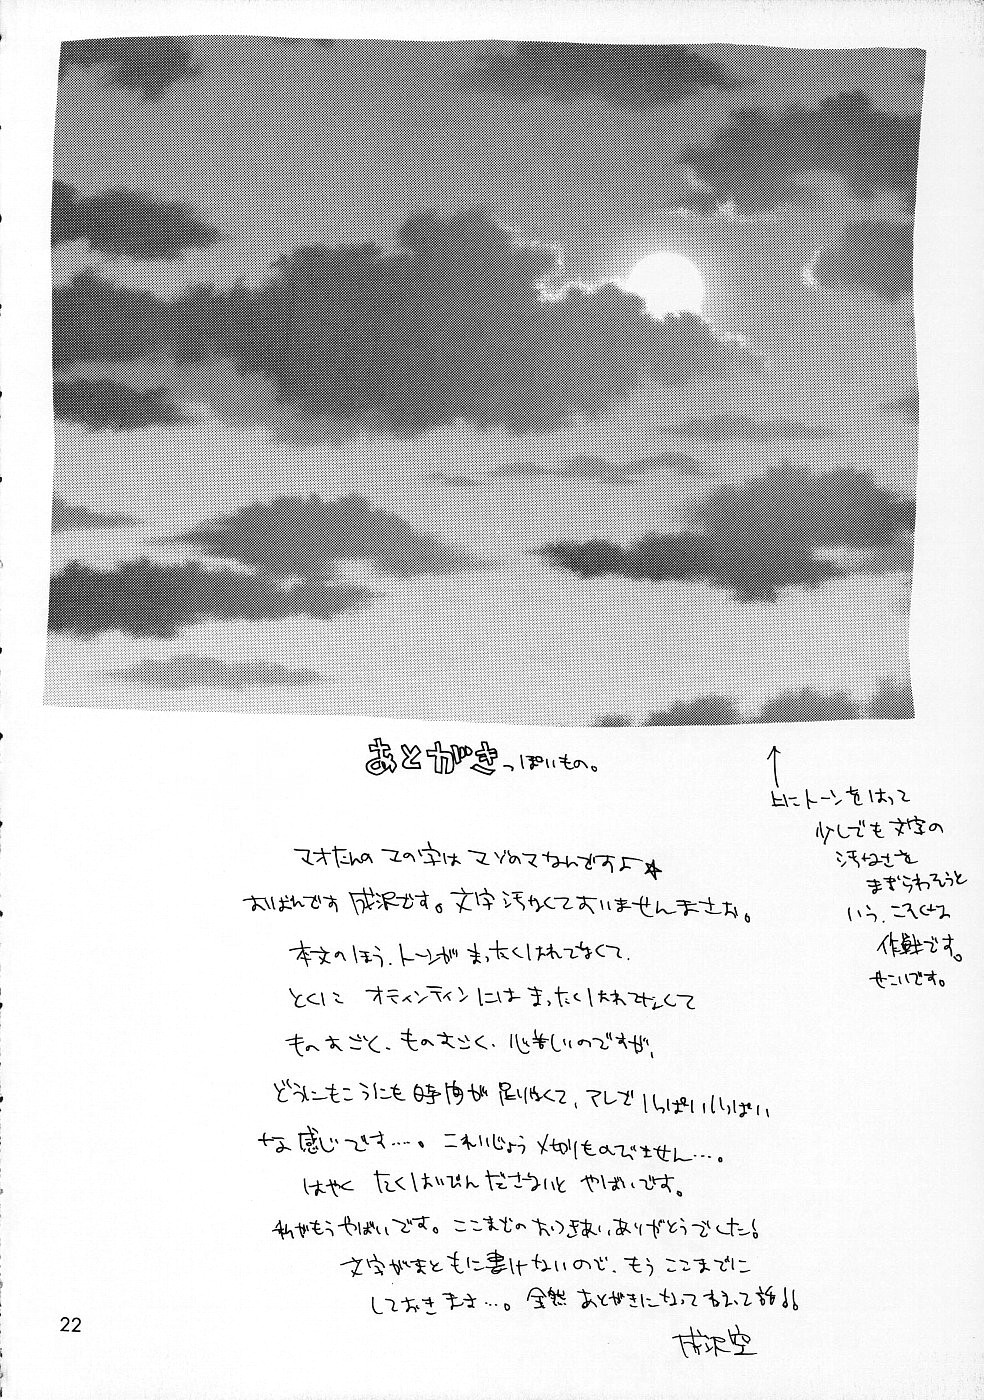 あとがきっぽいもの。
↑
上にトーンをはって
少しでも文字の
汚なさを
まぎらわそうと
いう、こそくな
作戦です。
せこいです。
マオたんのマの字はマゾのマなんですよ☆
おばんです成沢です。文字汚なくてすいませんまさお。
本文のほう、トーンがまったくはれてなくて、
とくに オティンティンにはまったくはれてなくて
ものすごく、ものすごく、心苦しいのですが、
どうにもこうにも時間が足りなくて、アレでいっぱいいっぱい
な感じです…。これいじょう〆切りものびません…。
はやく たくはいびんださないと やばいです。
私がもうやばいです。ここまでのおつきあい、ありがとうでした!
文字がまともに書けないので、もうここまでに
しておきまさ…。全然あとがきになってねえって話!!
成沢空
22